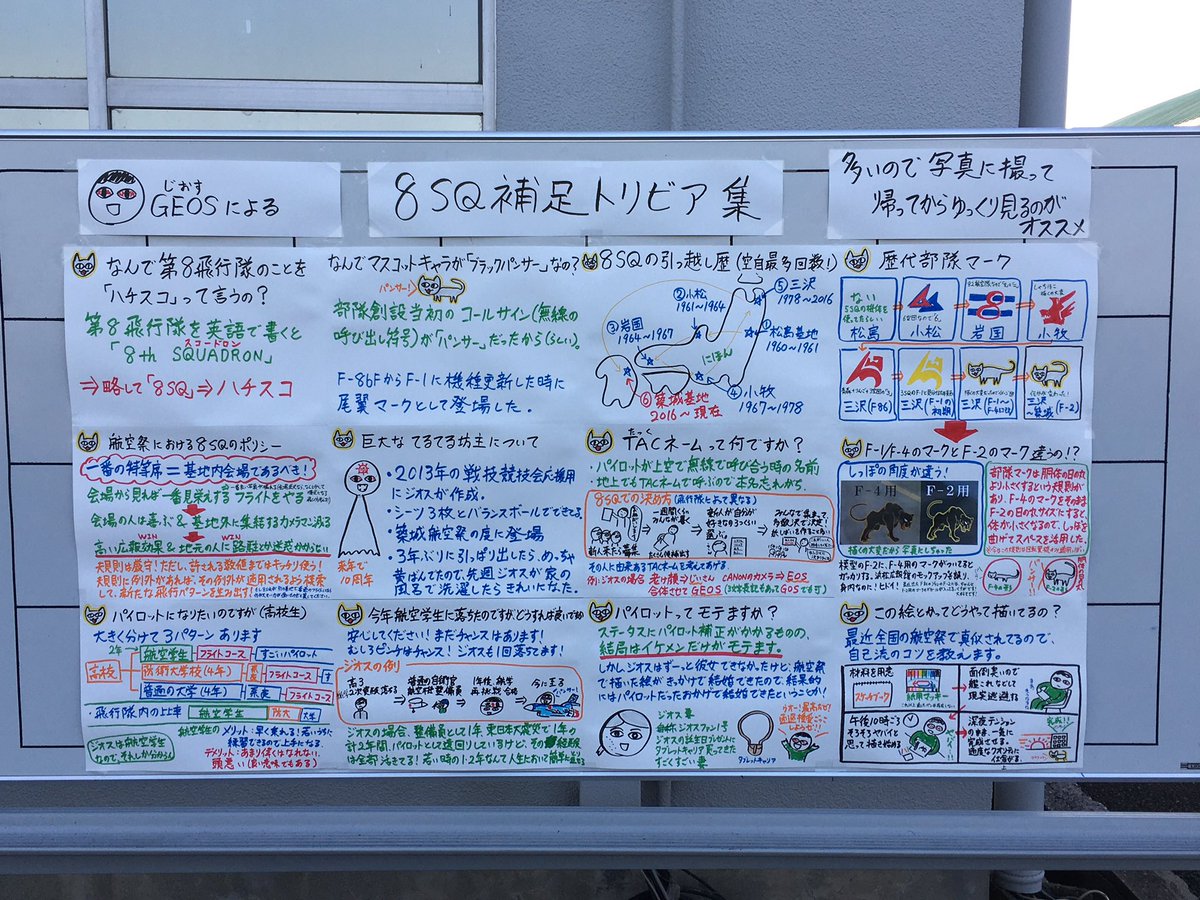 じおす
GEOSによる
8SQ補足トリビア集
多いので写真に撮って
帰ってからゆっくり見るのが
オススメ
なんで第8飛行隊のことを
「ハチスコ」って言うの？
第8飛行隊を英語で書くと
スコードロン
「8th SQUADRON」
⇒略して「8SQ」⇒ハチスコ
なんでマスコットキャラが「ブラックパンサー」なの？
パンサー！
部隊創設当初のコールサイン(無線の
呼び出し符号)が「パンサー」だったから(らしい)。
F-86FからF-1に機種更新した時に
尾翼マークとして登場した。
8SQの引っ越し歴(空自最多回数！)
⑤三沢
1978〜2016
②小松
1961〜1964
③岩国
1964〜1967
①松島基地
1960〜1961
にほん
④小牧
1967〜1978
⑥築城基地
2016〜現在
歴代部隊マーク
ない
松島
小松
岩国
小牧
三沢(F86)
三沢(F-1の初期)
三沢(F-1〜
三沢〜築城(F-2)
航空祭における8SQのポリシー
一番の特等席＝基地内会場であるべき！
会場から見れば一番見栄えするフライトをやる
会場の人は喜ぶ&基地外に集結するカメラマン減る
WIN WIN
高い広報効果&地元の人に路駐とか迷惑かからない
規則は厳守！ただし、許される数値まではキッチリ使う！
規則に例外があれば、その例外が適用されるよう模索
して、新たな飛行パターンを生み出す！
巨大なてるてる坊主について
・2013年の戦技競技会応援用
にジオスが作成。
・シーツ3枚とバランスボールでできてる。
・築城航空祭の度に登場
・3年ぶりに引っぱり出したら、めっちゃ
黄ばんでたので、先週ジオスが家の
風呂で洗濯したらきれいになった。
来年で
10周年
たっく
TACネームって何ですか？
・パイロットが上空で無線で呼び合う時の名前
地上でもTACネームで呼ぶので本名忘れがち。
8SQでの決め方(飛行隊によって異なる)
新人くん募集
一週間くらい
みんなが書く
たくさん候補出る
新人が自分が
好きなの3つくらい
選ぶ
みんなで集まって
多数決で決定！
その人に由来あるTACネームを考えてあげる。
例：ジオスの場合 老け顔⇒じいさん CANONのカメラ⇒EOS
合体させてGEOS
F-1/F-4のマークとF-2のマーク違うの！？
しっぽの角度が違う！
F-4用
F-2用
描くの大変だから写真にしちゃった
部隊マークは胴体の日の丸
より小さくするという規則が
あり、F-4のマークをそのまま
F-2の日の丸サイズにすると、
体が小さくなるので、しっぽを
曲げてスペースを活用した。
パイロットになりたいのですが(高校生)
大きく分けて3パターンあります
2年
高校
航空学生
フライトコース
すごいパイロット
防衛大学校(4年)
フライトコース
普通の大学(4年)
フライトコース
・飛行隊内の比率
航空学生
防大
大学
航空学生のメリット：早く乗れる！若いうちに
練習できるので上手になる。
デメリット：あまり深くはなれない。
頭悪い(良い意味でもある)
ジオスは航空学生
なので、それしか分からん
今年航空学生に落ちたのですが、どうすれば良いですか
安心してください！まだチャンスはあります！
むしろピンチはチャンス！ジオスも1回落ちてます！
ジオスの例
高3
普通の自衛官
航空機整備員
1年後、航学
再挑戦 合格
今に至る
パンサー！
ジオスの場合、整備員として1年、東日本大震災で1年の
計2年間、パイロットとしては遠回りしているけど、その経験
は全部活きてる！若い時の1・2年なんて人生において
パイロットってモテますか？
ステータスにパイロット補正がかかるものの、
結局はイケメンだけがモテます。
しかしジオスはずーっと彼女できなかったけど、航空祭
で描いた絵がきっかけで結婚できたので、結果的
にはパイロットだったおかげで結婚できたということか！
ジオス妻
自称ジオスファン1号
ジオスの誕生日プレゼントに
タブレットキャリア買ってきた
すごくすごい妻
タブレットキャリア
この絵とかってどうやって描いてるの？
最近全国の航空祭で真似されてるので、
自己流のコツを教えます。
材料を用意
スケッチブック
紙用マッキー
面倒臭いので
艦これなどして
現実逃避する
午後10時ごろ
そろそろヤバイと
思って描き始める
深夜テンション
のまま、一気に
完成させる。
完成!!